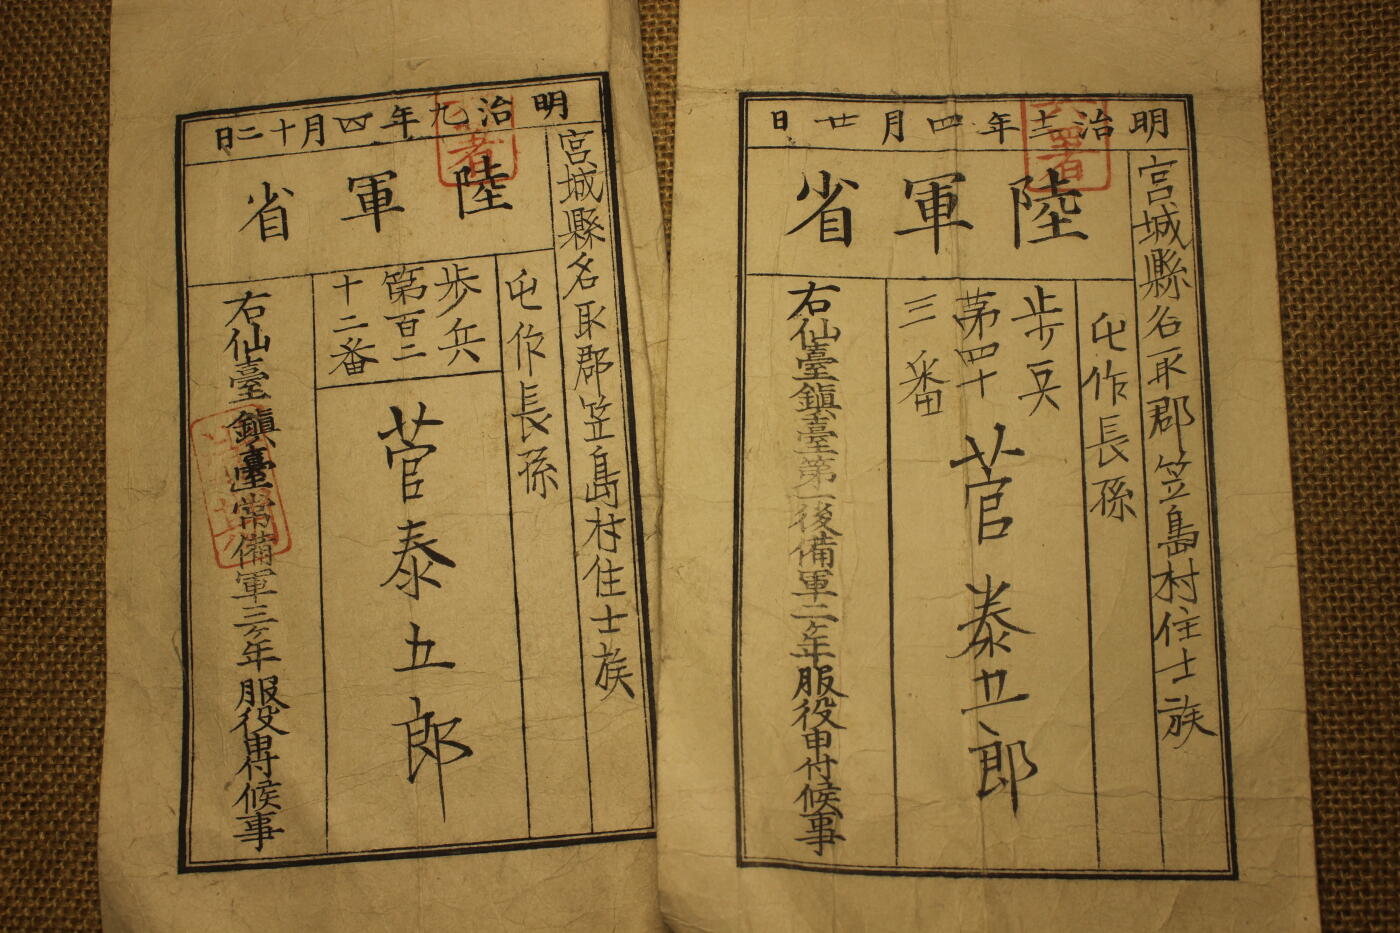 明治十二年四月廿日
宮城縣名取郡笠島村住士族
屯作長孫
陸軍省
歩兵
第四十
三番
菅泰五郎
右仙臺鎮臺第一後備軍二ヶ年服役申付候事
明治九年四月十二日
宮城縣名取郡笠島村住士族
屯作長孫
陸軍省
歩兵
第百二
十二番
菅泰五郎
右仙臺鎮臺常備軍三ヶ年服役申付候事